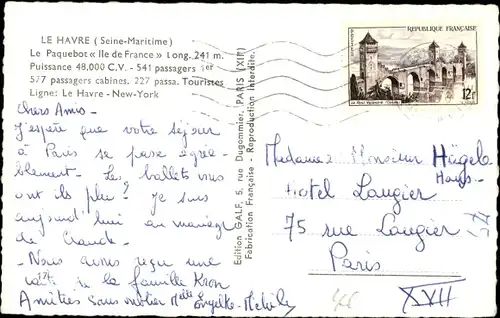 LE HAVRE (Seine-Maritime)
Le Paquebot « Ile de France » Long. 241 m.
Puissance 48.000 C.V. - 541 passagers 1er
577 passagers cabines. 227 passa. Touristes
Ligne: Le Havre - New-York
chers Amis -
J'espère que votre séjour
à Paris se passe agréa-
blement - Les ballets vous
ont ils plu? Je suis
aujourd'hui au mariage
de Claude -
- Nous avons reçu une
carte de la famille Kron
Amitiés sans oublier Melle
Edition GALF, 5, rue Dugommier, PARIS (XIIe)
Fabrication Française - Reproduction Interdite.
REPUBLIQUE FRANÇAISE
12f
Madame Monsieur Hägele
Hans -
Hotel Laugier
75 rue Laugier
Paris
XVII